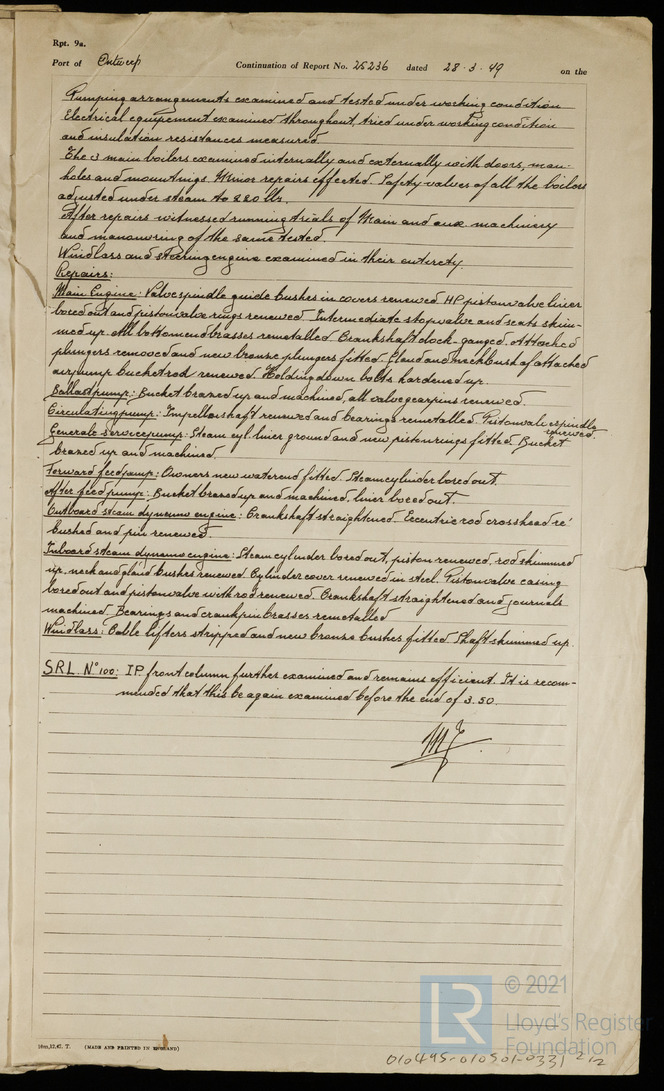 Rpt. 9a.
Port of Antwerp Continuation of Report No. 25236 dated 28.3.49 on the
Pumping arrangements examined and tested under working condition
Electrical equipement examined throughout, tried under working condition
and insulation resistances measured.
The 3 main boilers examined internally and externally with doors, man-
holes and mountings. Minor repairs effected. Safety valves of all the boilers
adjusted under steam to 220 lbs.
After repairs witnessed running trials of Main and aux machinery
and manouvring of the same tested.
Windlass and steering engine examined in their entirety.
Repairs:
Main Engine: Valvespindle guide bushes in covers renewed. HP. pistonvalve liner
bored out and pistonvalve rings renewed. Intermediate stopvalve and seats skim-
med up. All bottomend brasses remetalled. Crankshaft clock-ganged. Attached
plungers removed and new bronze plungers fitted. Gland and neckbush of attached
airpump bucketrod renewed. Holdingdown bolts hardened up.
Ballastpump: Bucket brazed up and machined, all valvegearpins renewed.
Circulatingpump: Impellershaft renewed and bearings remetalled. Pistonvalvespindle
renewed.
Generale servicepump: Steam cyl. liner ground and new pistonrings fitted. Bucket
brazed up and machined.
Forward feedpump: Owners new waterend fitted. Steamcylinder bored out.
After feedpump: Bucket brazed up and machined, liner bored out.
Outboard steam dynamo engine: Crankshaft straightened. Eccentric rod crosshead re'
bushed and pin renewed.
Inboard steam dynamo engine: Steamcylinder bored out, piston renewed, rod skimmed
up. neck and gland bushes renewed. Cylinder cover renewed in steel. Pistonvalve casing
bored out and pistonvalve with rod renewed. Crankshaft straightened and journals
machined. Bearings and crankpin brasses remetalled.
Windlass: Cable lifters stripped and new bronze bushes fitted. Shaft skimmed up.
S.R.L. N° 100: I.P. front column further examined and remains efficient. It is recom-
mended that this be again examined before the end of 3.50.
© 2021
LR Lloyd's Register
Foundation
(MADE AND PRINTED IN ENGLAND)
010495-010501-0331 2/2